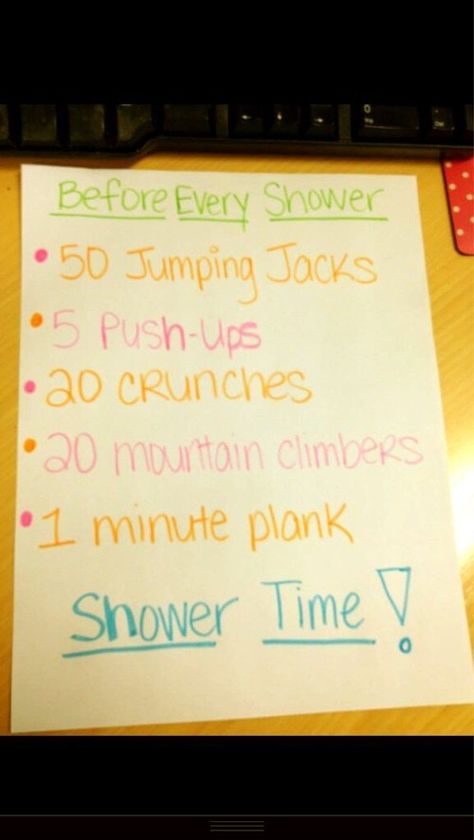 Before Every Shower
• 50 Jumping Jacks
• 5 Push-Ups
• 20 CRunches
• 20 mountain climbeRs
• 1 minute plank
Shower Time!